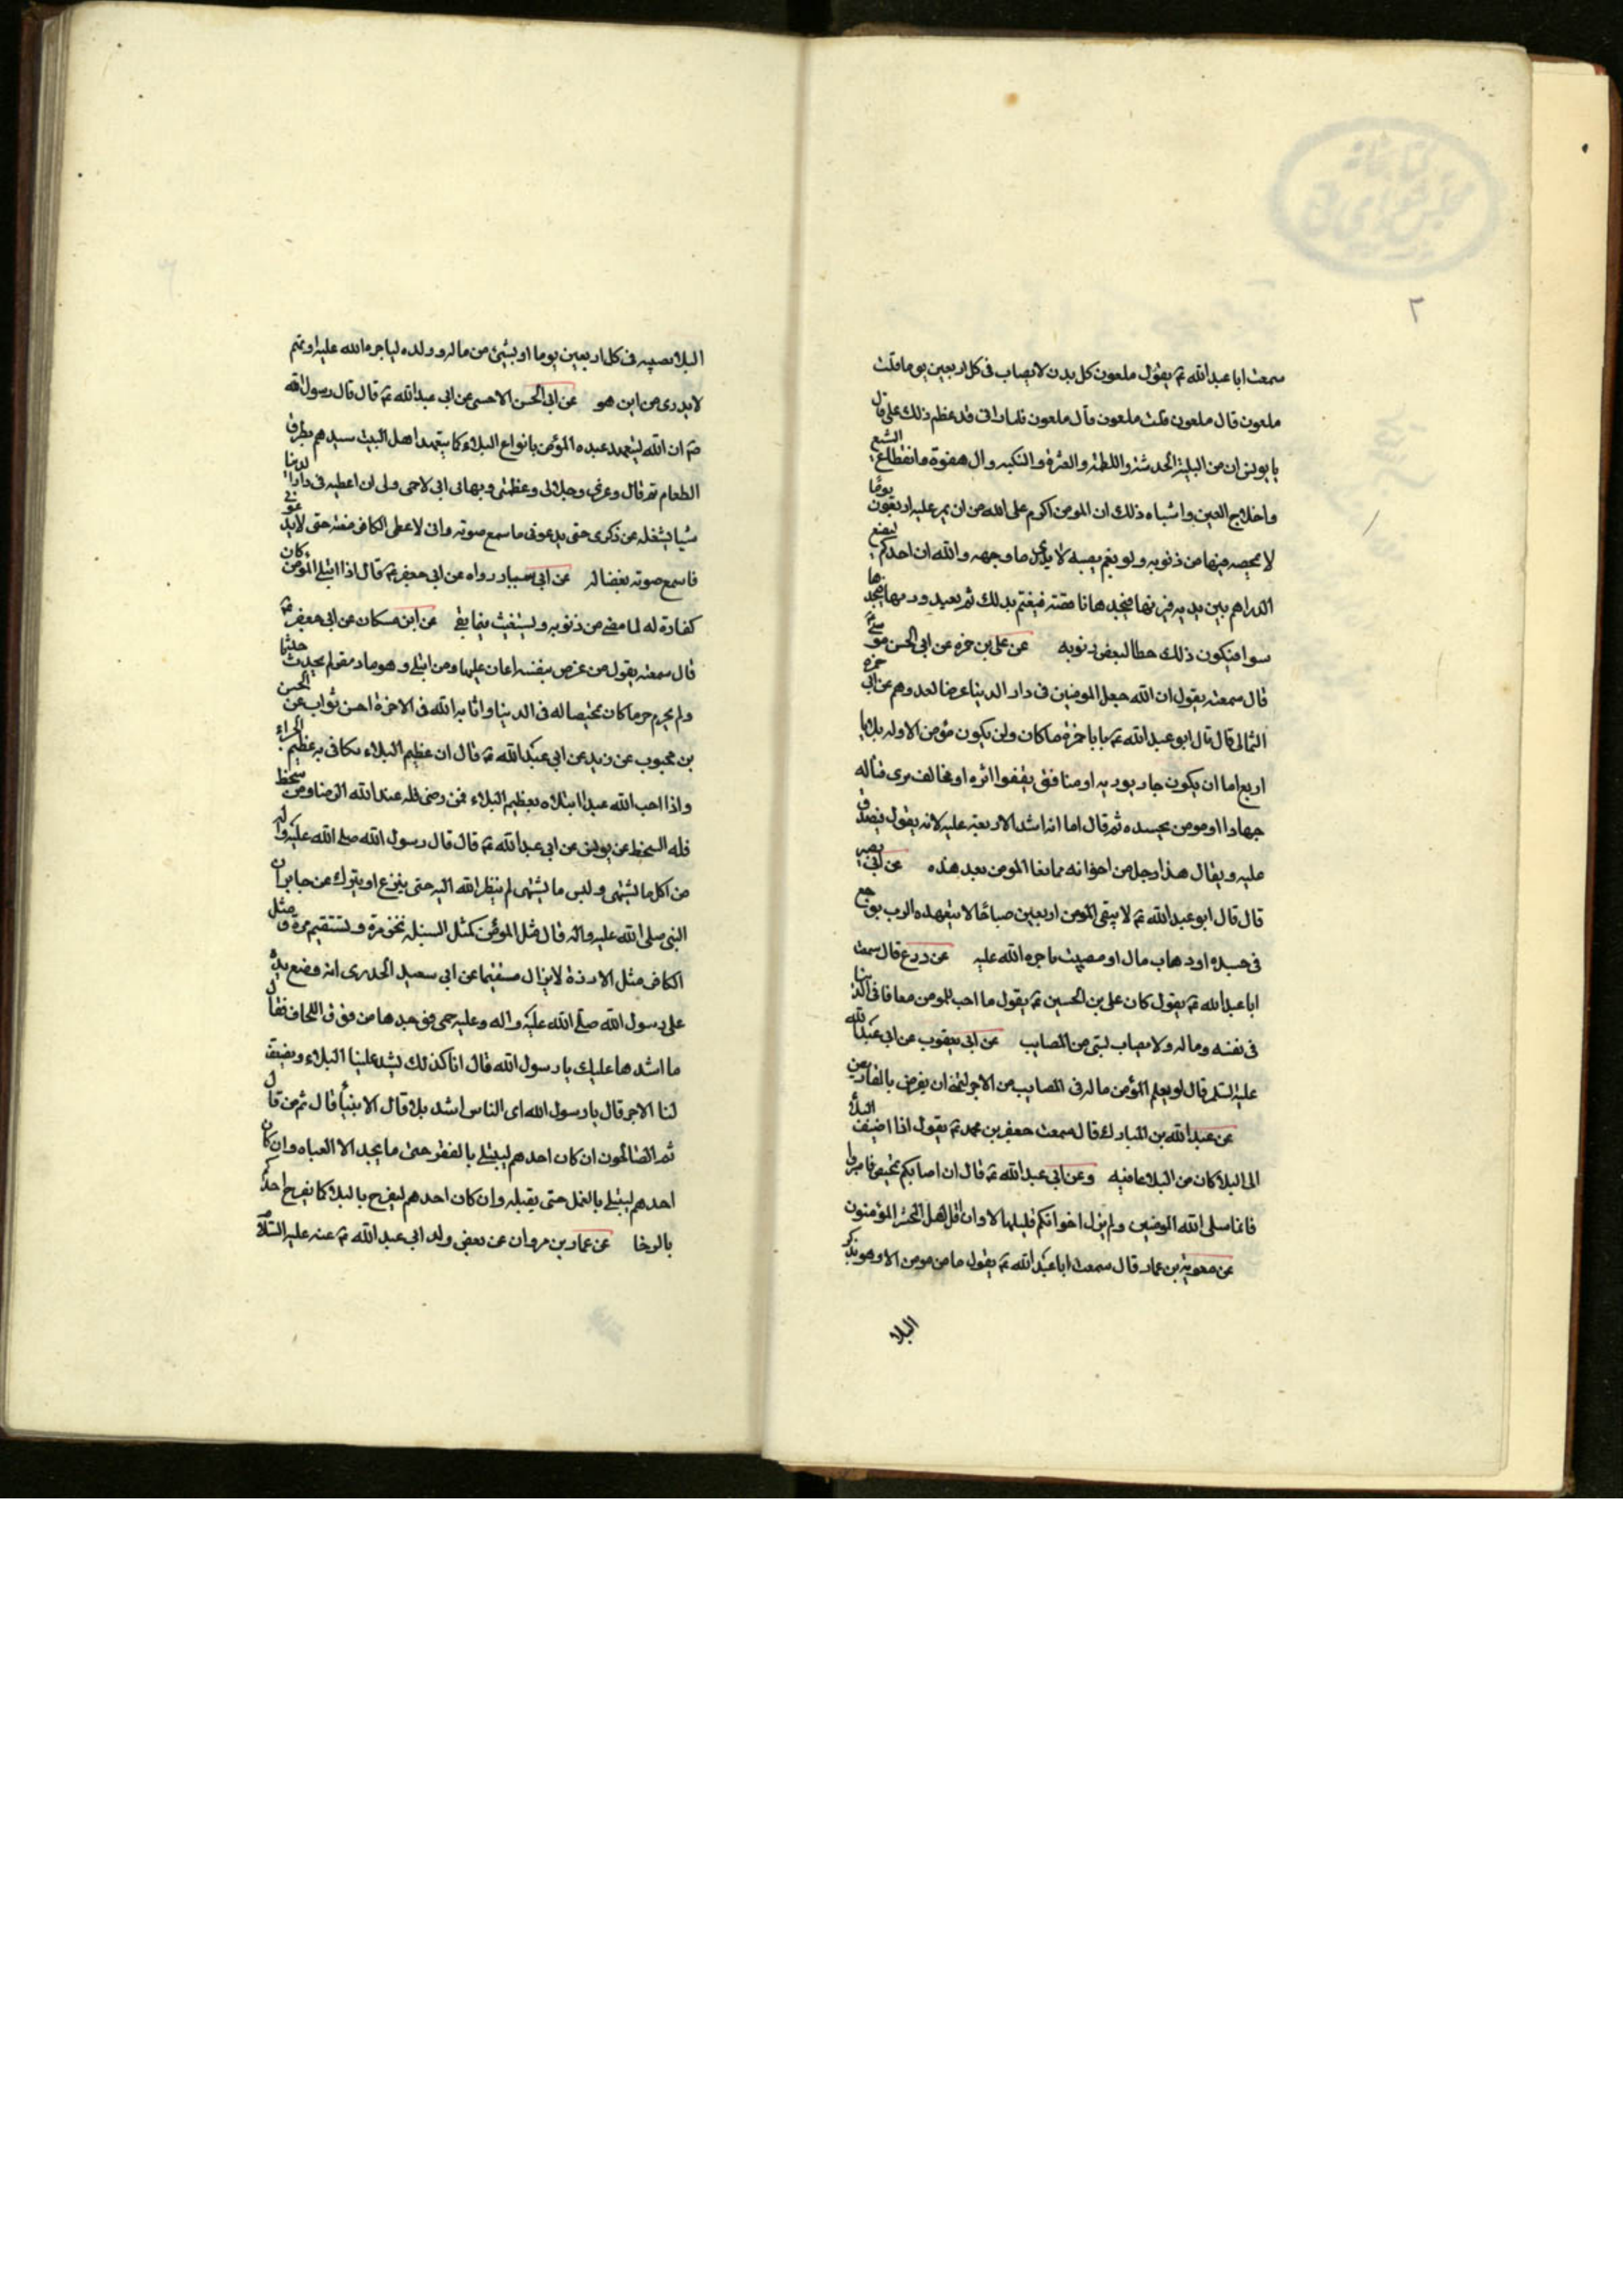 ٢
سمعت ابا عبد الله ع يقول ملعون كل بدن لا يصاب فى كل اربعين يوما قلت
ملعون قال ملعون قلت ملعون قال ملعون فلما رانى قد عظم ذلك على قال
يا يونس ان من البلية الخدشة و اللطمة و العثرة و النكبه و الهفوة و انقطاع الشسع
و اختلاج العين و اشباه ذلك ان المومن اكرم على الله من ان يمر عليه اربعون يومًا
لا يمحصه فيها من ذنوبه و لو بغم يصيبه لا يدرى ما وجهه و الله ان احدكم ليضع
الدراهم بين يديه فيزنها فيجدها ناقصة فيغتم بذلك ثم يعيد وزنها فيجدها
سوا فيكون ذلك حطا لبعض ذنوبه عن على بن حمزه عن ابى الحسن موسى
قال سمعته يقول ان الله جعل المومنين فى دار الدنيا غرضا لعدوهم عن ابى حمزه
الثمالى قال قال ابو عبد الله ع يا با حمزة ما كان و لن يكون مؤمن الا و له بلايا
اربع اما ان يكون جار يوديه او منافق يقفوا اثره او مخالف يرى قتاله
جهادا او مومن يحسده ثم قال اما انه اشد الاربعة عليه لانه يقول فيصدق
عليه و يقال هذا رجل من اخوانه فما بقا المومن بعد هذه عن ابى بصير
قال قال ابو عبد الله ع لا يبقى المومن اربعين صباحًا لا يتعهده الرب بوجع
فى جسده او ذهاب مال او مصيبة ياجره الله عليه عن ذرع قال سمعت
ابا عبد الله ع يقول كان على بن الحسين ع يقول ما احب للمومن معافا فى الدنيا
فى نفسه و ماله و لا يصاب بشى من المصايب عن ابى يعقوب عن ابى عبد الله
عليه السلم قال لو يعلم المؤمن ما له فى المصايب من الاجر لتمنى ان يقرض بالمقاريض
عن عبد الله بن المبارك قال سمعت جعفر بن محمد ع يقول اذا اضيف البلأ
الى البلا كان من البلا عافيه و عن ابى عبد الله ع قال ان اصابكم تمحيص فاصبروا
فانما يبتلى الله المومنين و لم يزل اخوانكم قليلا الا و ان اقل اهل المحشر المؤمنون
عن معوية بن عمار قال سمعت ابا عبد الله ع يقول ما من مومن الا و هو يذكر
البلا
البلا يصيبه فى كل اربعين يوما او بشئ من ماله و ولده لياجره الله عليه او بهم
لا يدرى من اين هو عن ابى الحسن الاحمسى عن ابى عبد الله ع قال قال رسول الله
ص ان الله ليتعهد عبده المؤمن بانواع البلاء كما يتعهد اهل البيت سيدهم بطرف
الطعام ثم قال و عزتى و جلالى و عظمتى و بهائى انى لاحمى وليى ان اعطيه فى دار الدنيا
شيا يشغله عن ذكرى حتى يدعونى فاسمع صوته و انى لاعطى الكافر منيته حتى لا يدعونى
فاسمع صوته بغضا له عن ابى سيار رواه عن ابى جعفر ع قال اذا ابتلى المؤمن كان
كفارة له لما مضى من ذنوبه و يستغيث فيما بقى عن ابن مسكان عن ابى جعفر ع
بن محبوب عن زيد عن ابى عبد الله ع قال ان عظيم البلاء يكافى به عظيم الجزاء
و اذا احب الله عبدا ابتلاه بعظيم البلاء فمن رضى فله عند الله الرضا و من سخط
فله السخط عن يونس عن ابى عبد الله ع قال قال رسول الله صلى الله عليه و اله
من اكل ما يشتهى و لبس ما يشتهى لم ينظر الله اليه حتى ينزع او يترك عن جابر ان
النبى صلى الله عليه و اله قال مثل المؤمن كمثل السنبله تخر مرة و تستقيم مرة و مثل
الكافر مثل الارزة لا يزال مستقيما عن ابى سعيد الخدرى انه وضع يده
على رسول الله صلى الله عليه و اله و عليه حمى فوجدها من فوق اللحاف فقال
ما اشدها عليك يا رسول الله قال انا كذلك يشد علينا البلاء و يضعف
لنا الاجر قال يا رسول الله اى الناس اشد بلا قال الانبيأ قال ثم من قال
ثم الصالحون ان كان احدهم ليبتلى بالفقر حتى ما يجد الا العباه و ان كان
احدهم ليبتلى بالقمل حتى يقتله و ان كان احدهم ليفرح بالبلا كما يفرح احدكم
بالرخا عن عمار بن مروان عن بعض ولد ابى عبد الله ع عنه عليه السلام